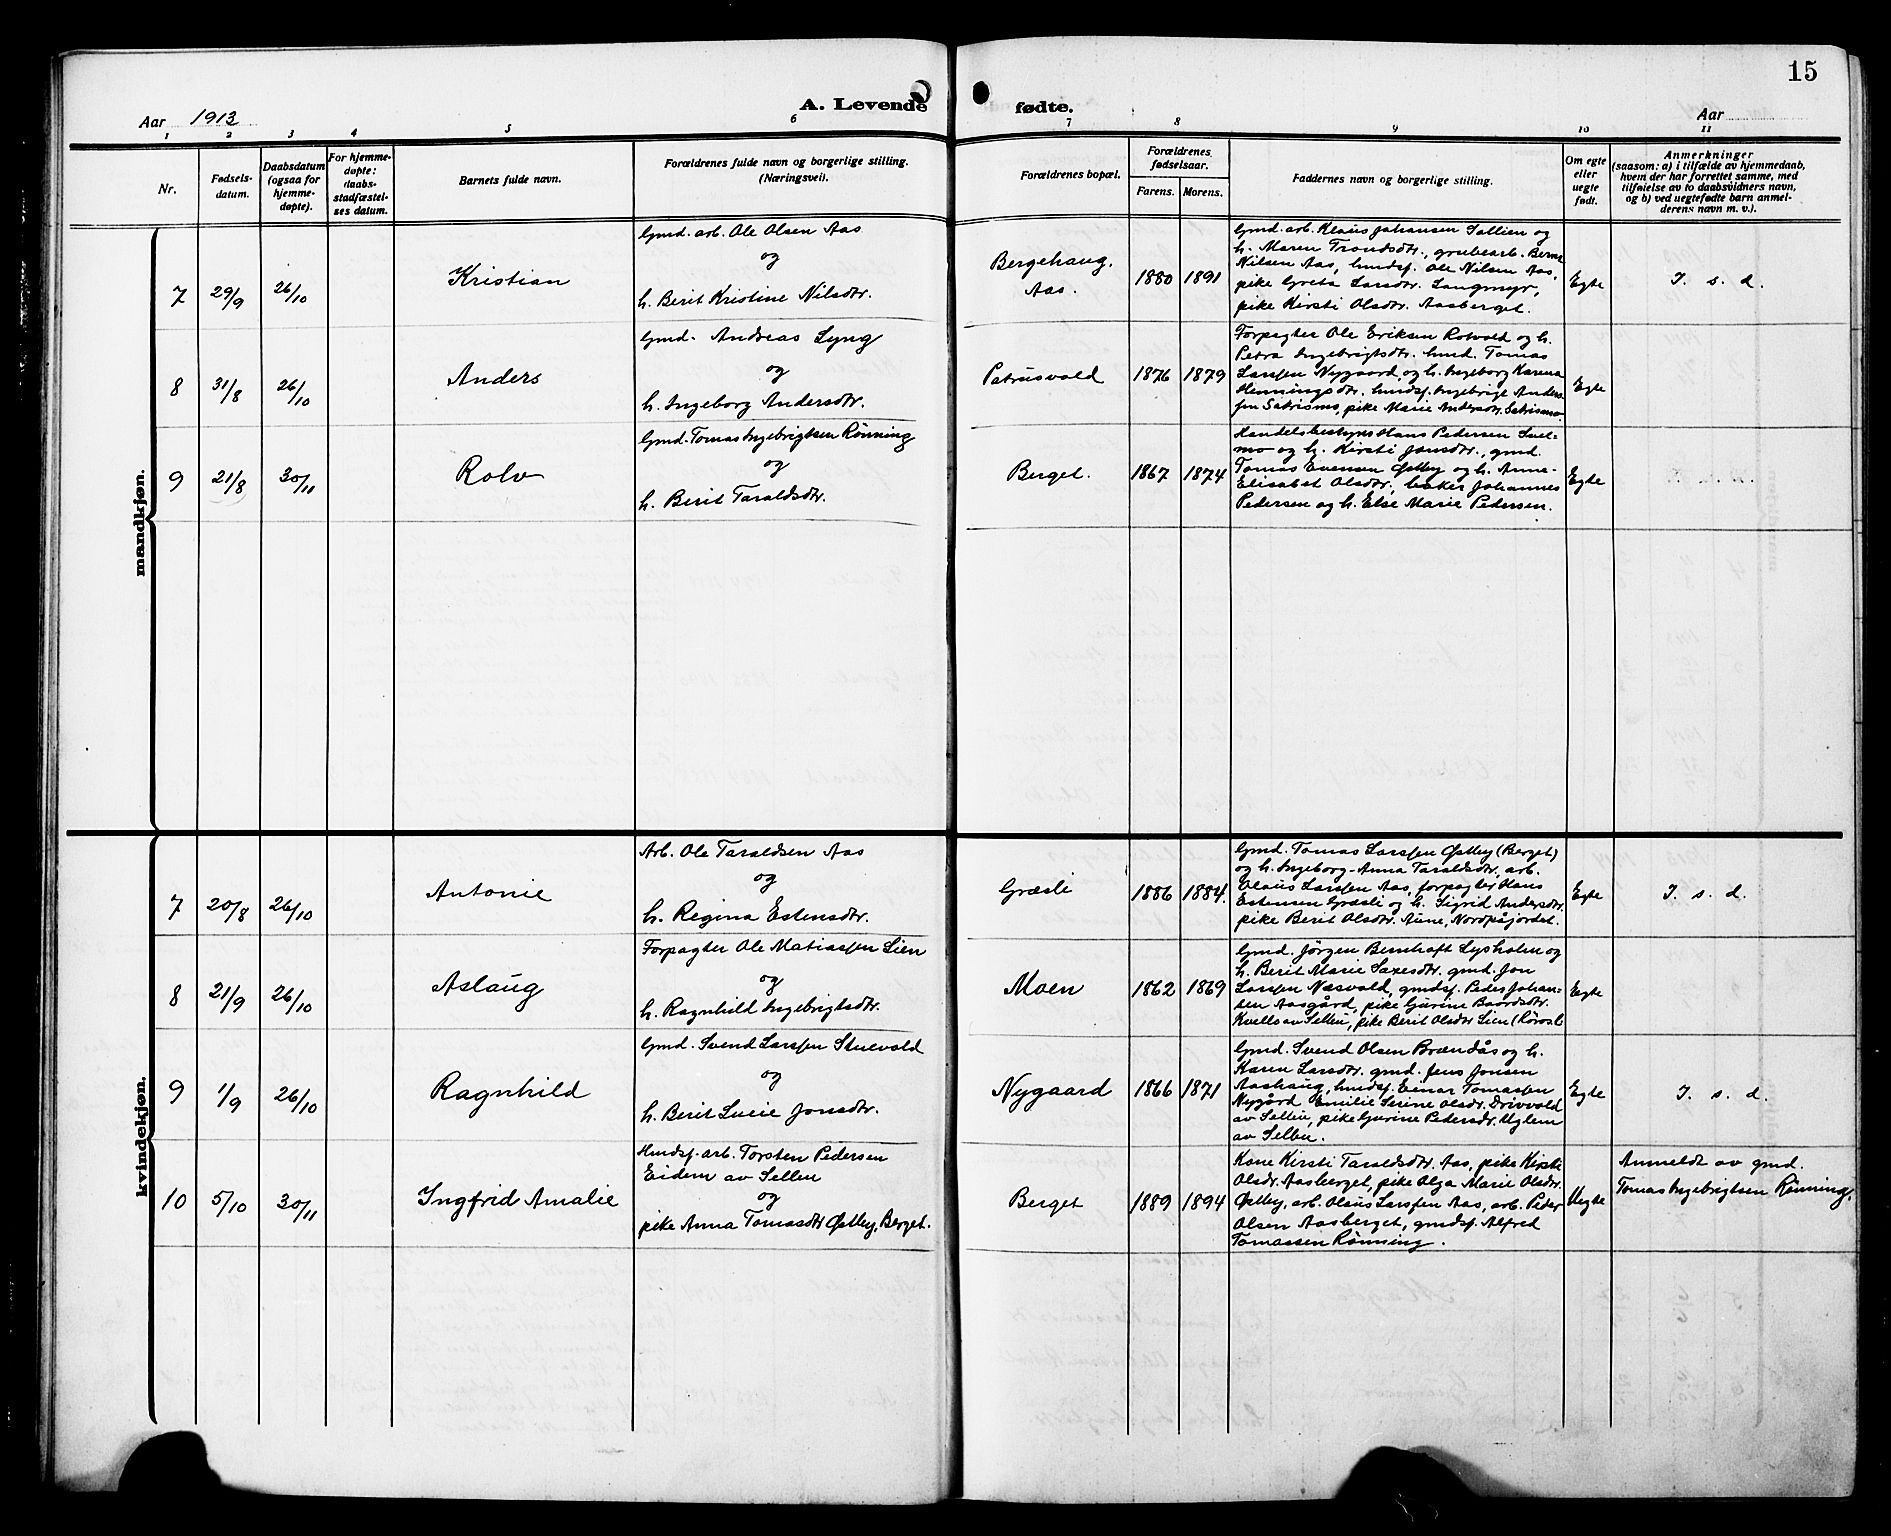 15
A. Levende fødte.
Aar 1913
Aar
1 2 3 4 5 6 7 8 9 10 11
Nr.
Fødsels-
datum.
Daabsdatum
(ogsaa for
hjemme-
døpte).
For hjemme-
døpte:
daabs-
stadfæstel-
ses datum.
Barnets fulde navn.
Forældrenes fulde navn og borgerlige stilling.
(Næringsvei).
Forældrenes bopæl.
Forældrenes
fødselsaar.
Farens. Morens.
Faddernes navn og borgerlige stilling.
Om egte
eller
uegte
født.
Anmerkninger
(saasom: a) i tilfælde av hjemmedaab,
hvem der har forrettet samme, med
tilføielse av to daabsvidners navn,
og b) ved uegtefødte barn anmel-
derens navn m. v.).
mandkjøn.
7 29/9 26/10
Kristian
Gmd. arb. Ole Olsen Aas
og
h. Berit Kristine Nilsdtr.
Bergehaug,
Aas.
1880 1891
Gmd. arb. Klaus Johansen Sellien og
h. Maren Trondsdtr., grubearb. Bernt
Nilsen Aas, hmdsf. Ole Nilsen Aas,
pike Greta Larsdtr. Langmyr,
pike Kirsti Olsdtr. Aasberget.
Egte
I. s. d.
8 31/8 26/10
Anders
Gmd. Andreas Lyng
og
h. Ingeborg Andersdtr.
Patrusvold
1876 1879
Forpagter Ole Eriksen Rotvold og h.
Petra Ingebrigtsdtr. hmd. Tomas
Larssen Nygaard, og h. Ingeborg Karena
Henningsdtr, hmdsf. Ingebrigt Anders-
sen Sakrismo, pike Marie Andersdtr. Sakrismo
Egte
9 21/8 30/11
Rolv
Gmd. Tomas Ingebrigtsen Rønning
og
h. Berit Taraldsdtr.
Berget.
1867 1874
Handelsbestyrer Hans Pedersen Svel-
mo og h. Kirsti Jonsdtr., gmd.
Tomas Evensen Østby og h. Anne-
Elisabet Olsdtr, baker Johannes
Pedersen og h. Else Marie Pedersen.
Egte
kvindekjøn.
7 20/8 26/10
Antonie
Arb. Ole Taraldsen Aas
og
h. Regina Estensdtr.
Græsli
1886 1884.
Gmd. Tomas Larssen Østby (Berget)
og h. Ingeborg-Anna Taraldsdtr, arb.
Olaus Larssen Aas, forpagter Hans
Estensen Græsli og h. Sigrid Andersdtr,
pike Berit Olsdtr. Aune, Nordpåjordet.
Egte
I. s. d.
8 21/9 26/10
Aslaug
Forpagter Ole Matiassen Lien
og
h. Ragnhild Ingebrigtsdtr.
Moen
1862 1869
Gmd. Jörgen Bernhoft Lysholm og
h. Berit Marie Saxesdtr. gmd. Jon
Larssen Næsvold, gmdsf. Peder Johan-
sen Aasgård, pike Gurine Baardsdtr.
Kvello av Selbu, pike Berit Olsdtr Lien (Røros).
Egte
9 1/9 26/10
Ragnhild
Gmd. Svend Larssen Stuevold
og
h. Berit Lucie Jonsdtr.
Nygaard
1866 1871
Gmd. Svend Olsen Brændås og h.
Karen Larsdtr. gmd. Jens Jonsen
Aashaug, hmdsf. Einar Tomassen
Nygård Emilie Serine Olsdr. Drivvold
av Selbu, pike Gurine Pedersdr. Uglem
av Selbu.
Egte
I. s. d.
10 5/10 30/11
Ingfrid Amalie
Hmdsf. arb. Torsten Pedersen
Eidem av Selbu
og
pike Anna Tomasdtr Østby, Berget.
Berget
1889 1894
Kone Kirsti Taraldsdtr. Aas, pike Kirsti
Olsdr. Aasberget, pike Olga Marie Olsdr.
Østby, arb. Olaus Larssen Aas, arb. Peder
Olsen Aasberget, gmdsf. Alfred
Tomassen Rønning.
Uegte
Anmeldt av gmd.
Tomas Ingebrigtsen Rønning.